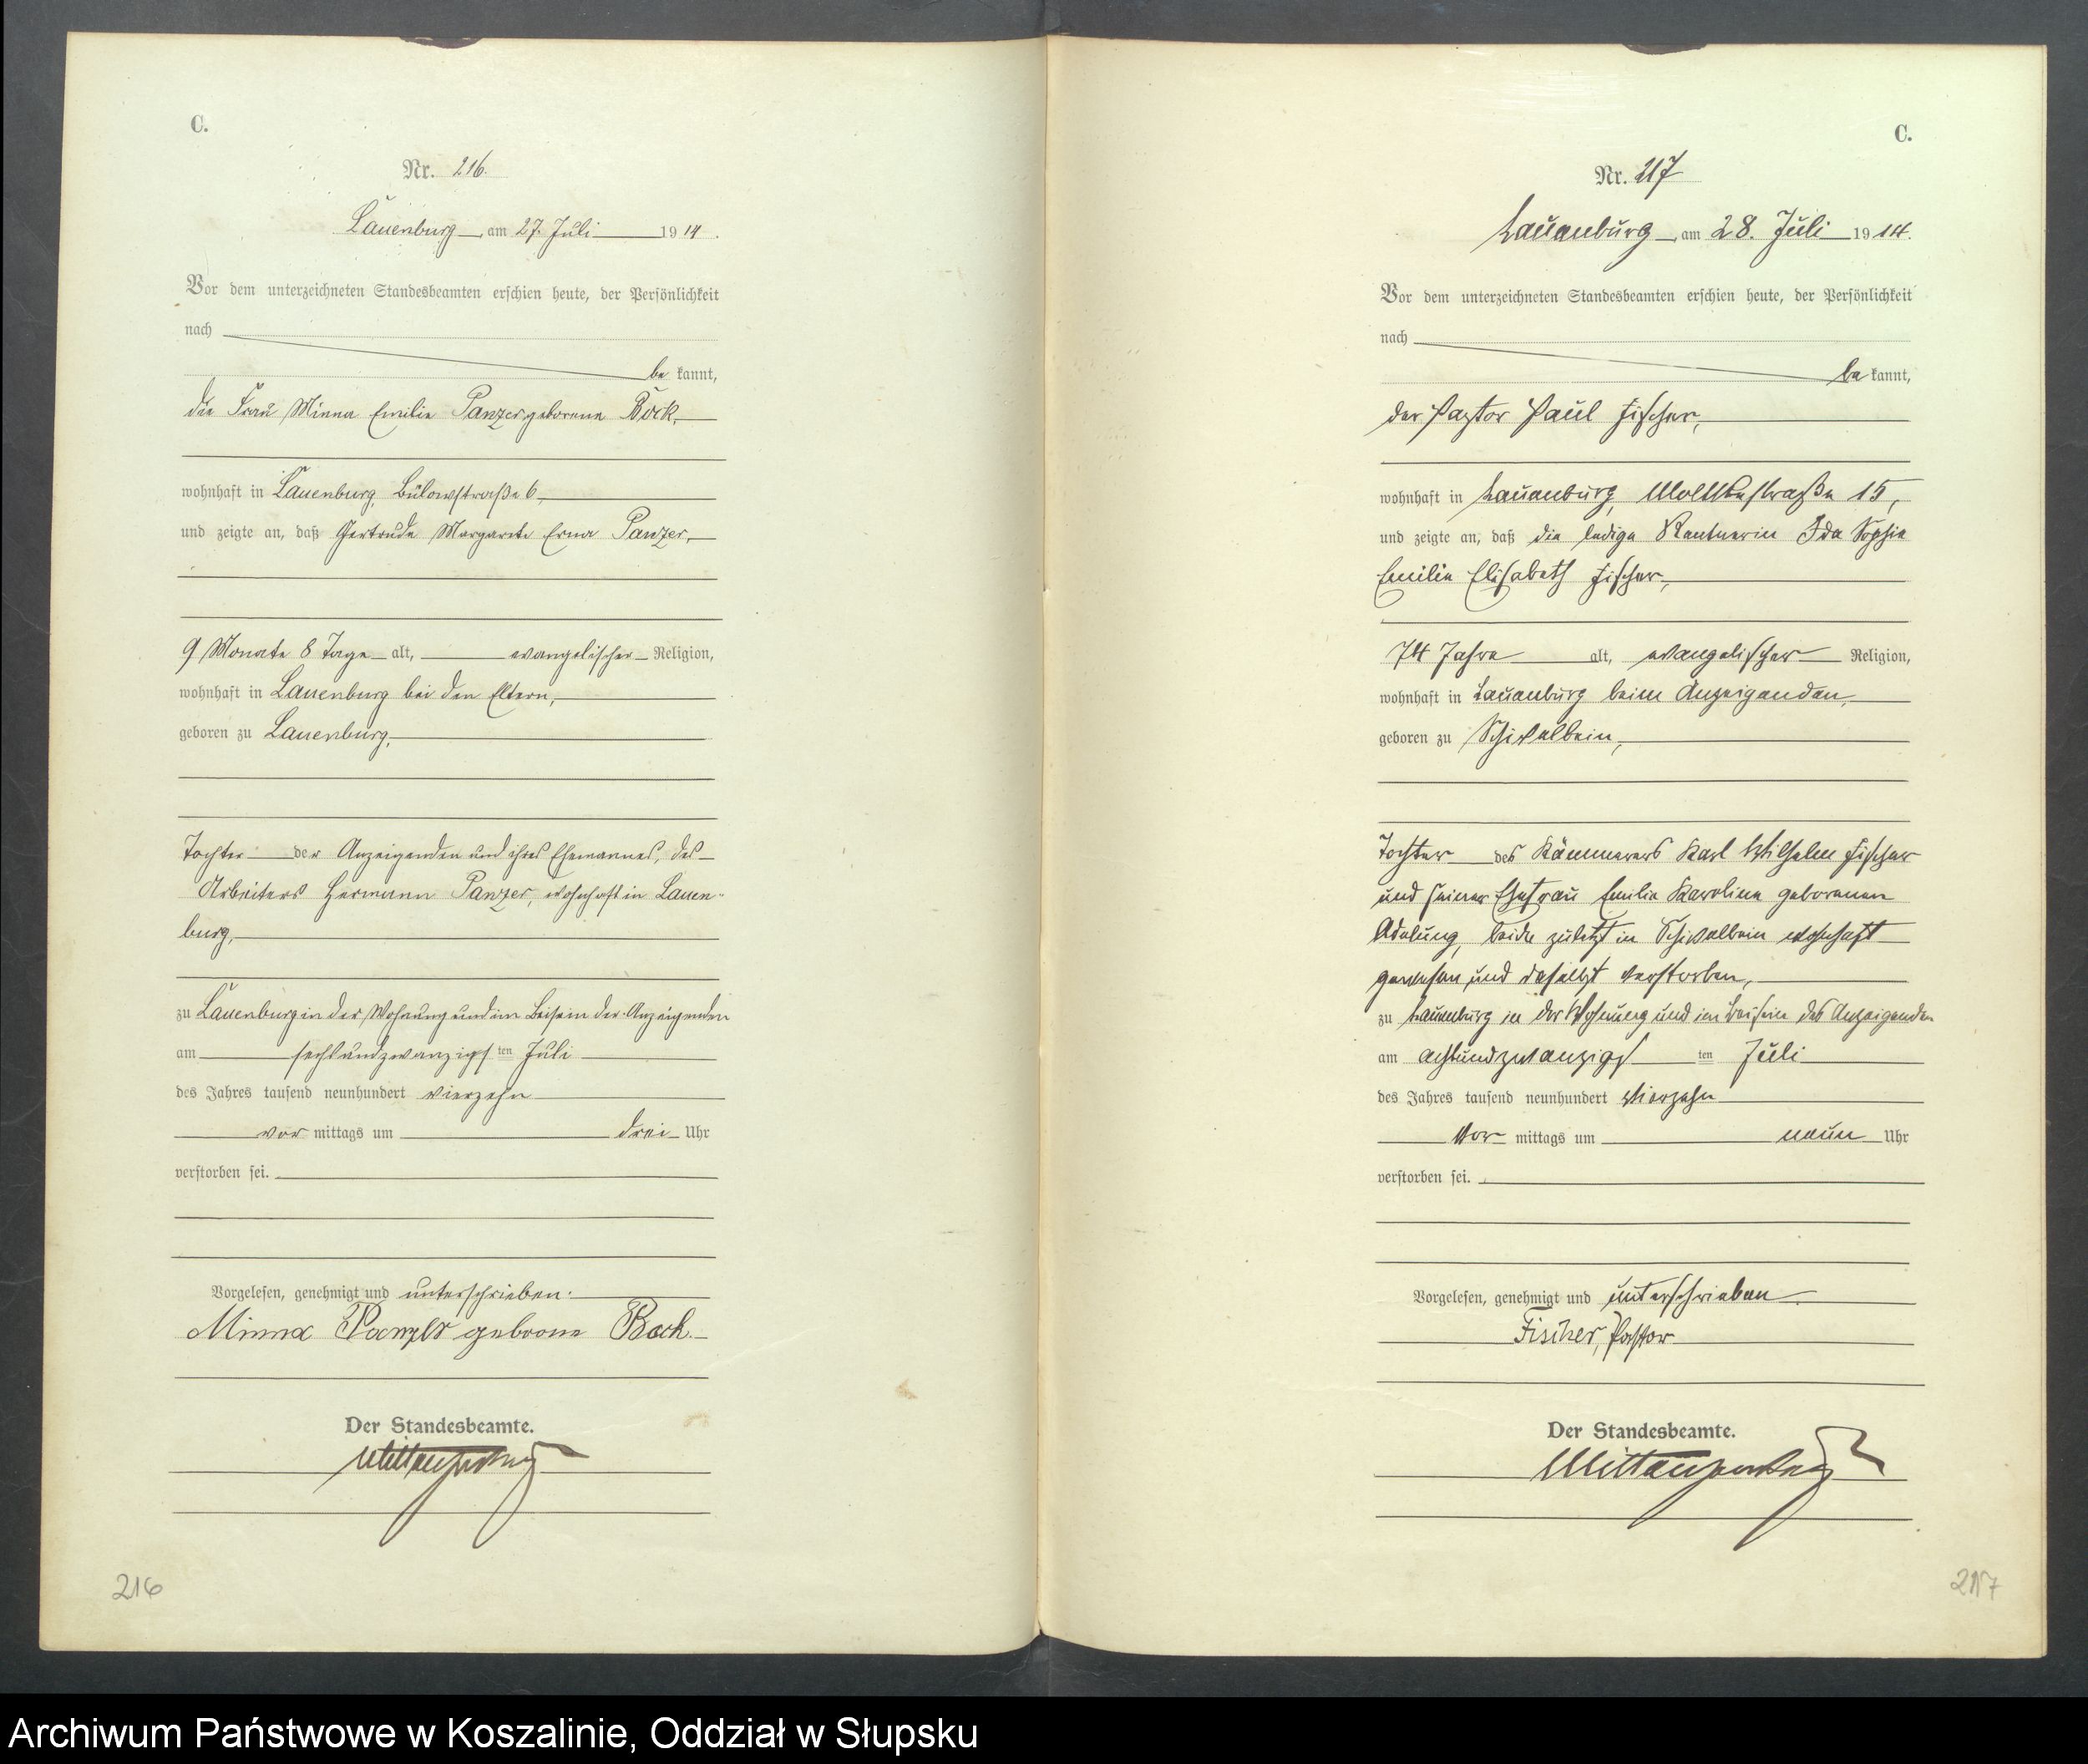 C.
Nr. 216.
Lauenburg, am 27. Juli 1914.
Vor dem unterzeichneten Standesbeamten erschien heute, der Persönlichkeit
nach
be kannt,
die Frau Minna Emilie Panzer geborene Bock,
wohnhaft in Lauenburg, Bülowstraße 6,
und zeigte an, daß Gertrude Margarete Erna Panzer,
9 Monate 8 Tage alt, evangelischer Religion,
wohnhaft in Lauenburg bei den Eltern,
geboren zu Lauenburg,
Tochter der Anzeigenden und ihres Ehemannes, des
Arbeiters Hermann Panzer, wohnhaft in Lauen-
burg,
zu Lauenburg in der Wohnung und im Beisein der Anzeigenden
am sechsundzwanzigsten Juli
des Jahres tausend neunhundert vierzehn
vor mittags um drei Uhr
verstorben sei.
Vorgelesen, genehmigt und unterschrieben.
Minna Panzer geborene Bock.
Der Standesbeamte.
216
C.
Nr. 217
Lauenburg, am 28. Juli 1914.
Vor dem unterzeichneten Standesbeamten erschien heute, der Persönlichkeit
nach
be kannt,
der Pastor Paul Fischer,
wohnhaft in Lauenburg, Moltkestraße 15,
und zeigte an, daß die ledige Rentnerin Ida Sophie
Emilie Elisabeth Fischer,
74 Jahre alt, evangelischer Religion,
wohnhaft in Lauenburg beim Anzeigenden,
geboren zu Schivelbein,
Tochter des Kämmerers Karl Wilhelm Fischer
und seiner Ehefrau Emilie Karoline geborenen
Adelung, beide zuletzt in Schivelbein wohnhaft
gewesen und daselbst verstorben,
zu Lauenburg in der Wohnung und im Beisein des Anzeigenden
am achtundzwanzigsten Juli
des Jahres tausend neunhundert vierzehn
vor mittags um neun Uhr
verstorben sei.
Vorgelesen, genehmigt und unterschrieben.
Fischer, Pastor
Der Standesbeamte.
217
Archiwum Państwowe w Koszalinie, Oddział w Słupsku